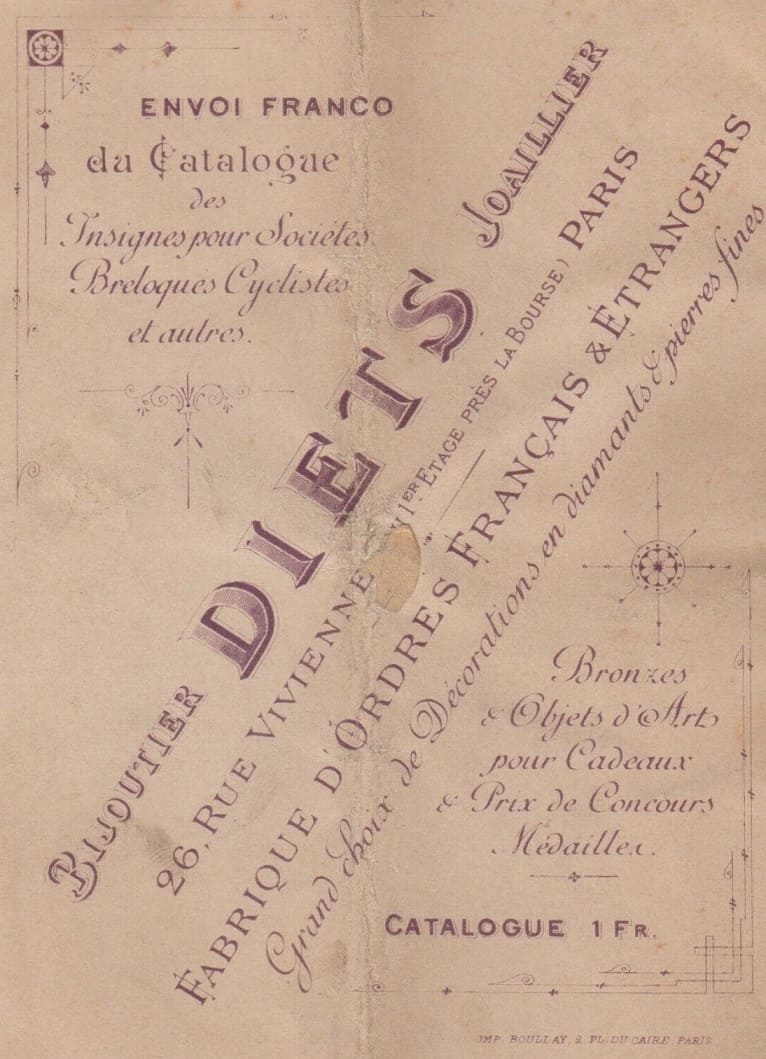 ENVOI FRANCO
du Catalogue
des
Insignes pour Sociétés
Breloques Cyclistes
et autres.
BIJOUTIER DIETS JOAILLIER
26, RUE VIVIENNE (1ER ETAGE PRÈS LA BOURSE) PARIS
FABRIQUE D'ORDRES FRANÇAIS & ÉTRANGERS
Grand choix de Décorations en diamants & pierres fines
Bronzes
& Objets d'Art
pour Cadeaux
& Prix de Concours
Médailles.
CATALOGUE 1 FR.
IMP. BOULLAY, 2, PL. DU CAIRE, PARIS